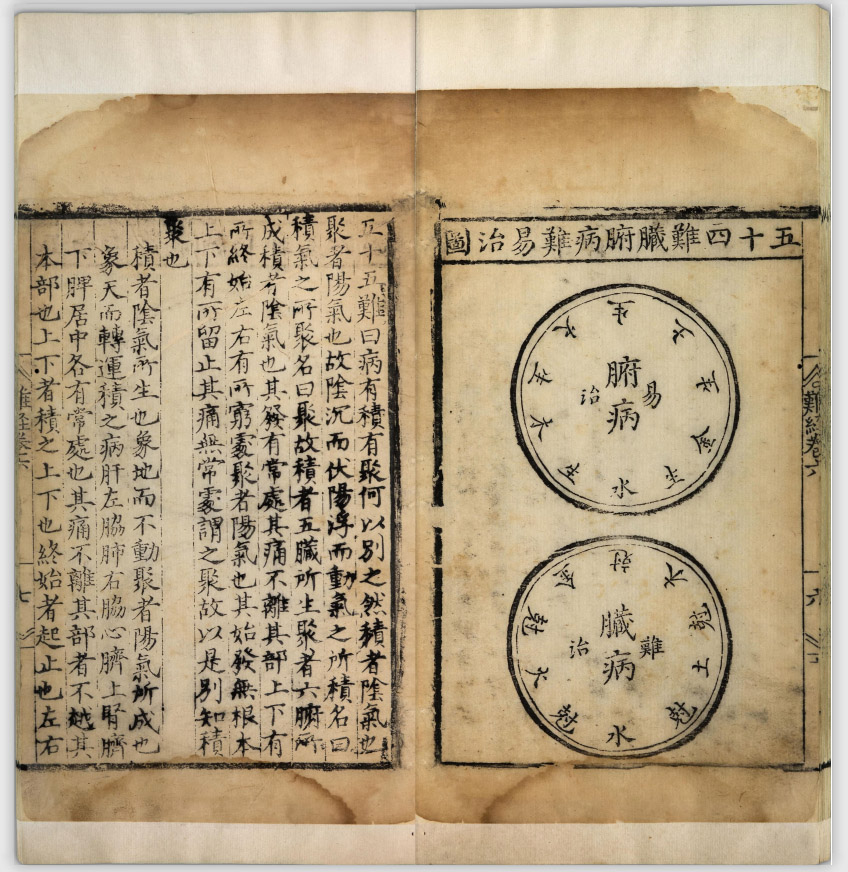 難經卷六
六
五十四難臟腑病難易治圖
腑病
易
治
生土生金生水生木生火
臟病
難
治
尅木尅土尅水尅火尅金
五十五難曰病有積有聚何以別之然積者陰氣也
聚者陽氣也故陰沉而伏陽浮而動氣之所積名曰
積氣之所聚名曰聚故積者五臟所生聚者六腑所
成積者陰氣也其發有常處其痛不離其部上下有
所終始左右有所窮處聚者陽氣也其始發無根本
上下有所留止其痛無常處謂之聚故以是別知積
聚也
積者陰氣所生也象地而不動聚者陽氣所成也
象天而轉運積之病肝左脇肺右脇心臍上腎臍
下脾居中各有常處也其痛不離其部者不越其
本部也上下者積之上下也終始者起止也左右
難經卷六
七